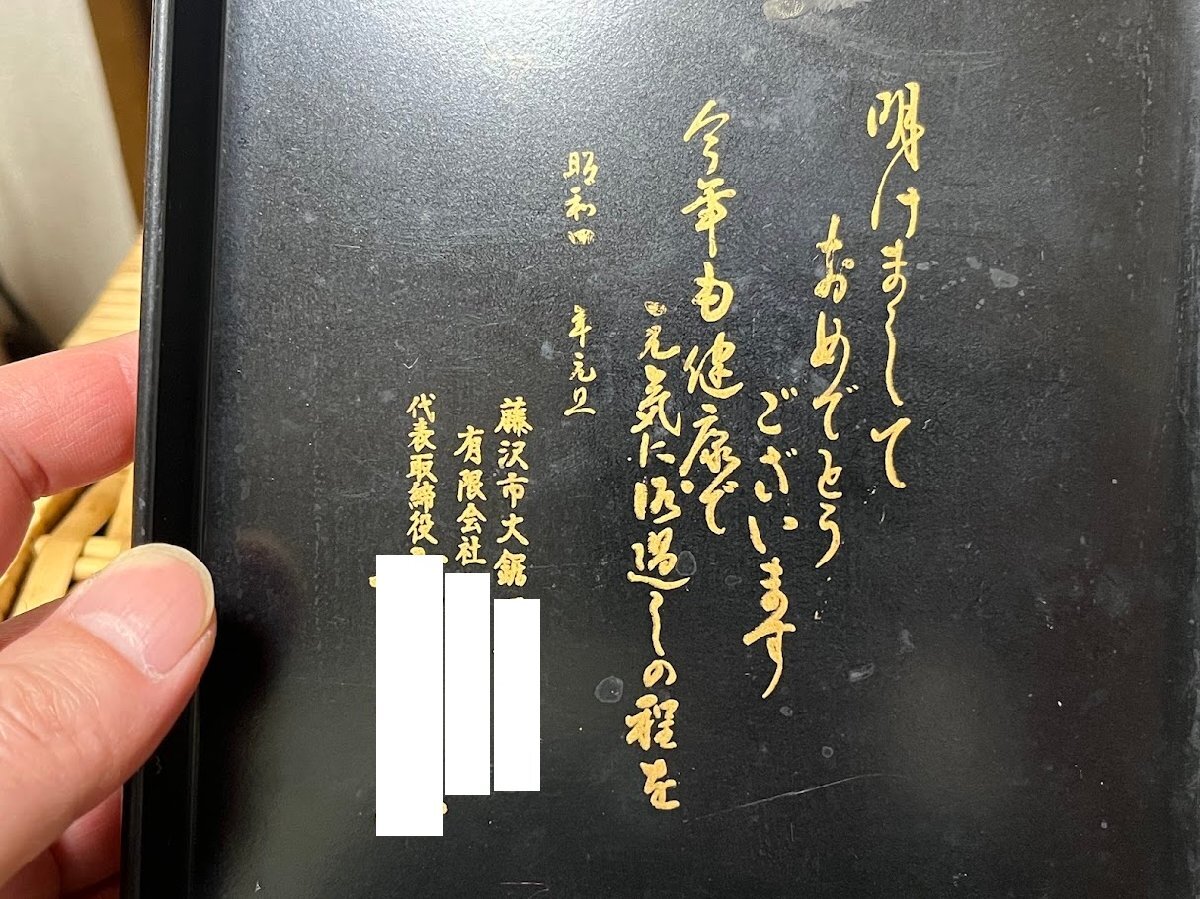 明けまして
おめでとう
ございます
今年も健康で
元気に御過しの程を
昭和四 年元旦
藤沢市大鋸
有限会社
代表取締役